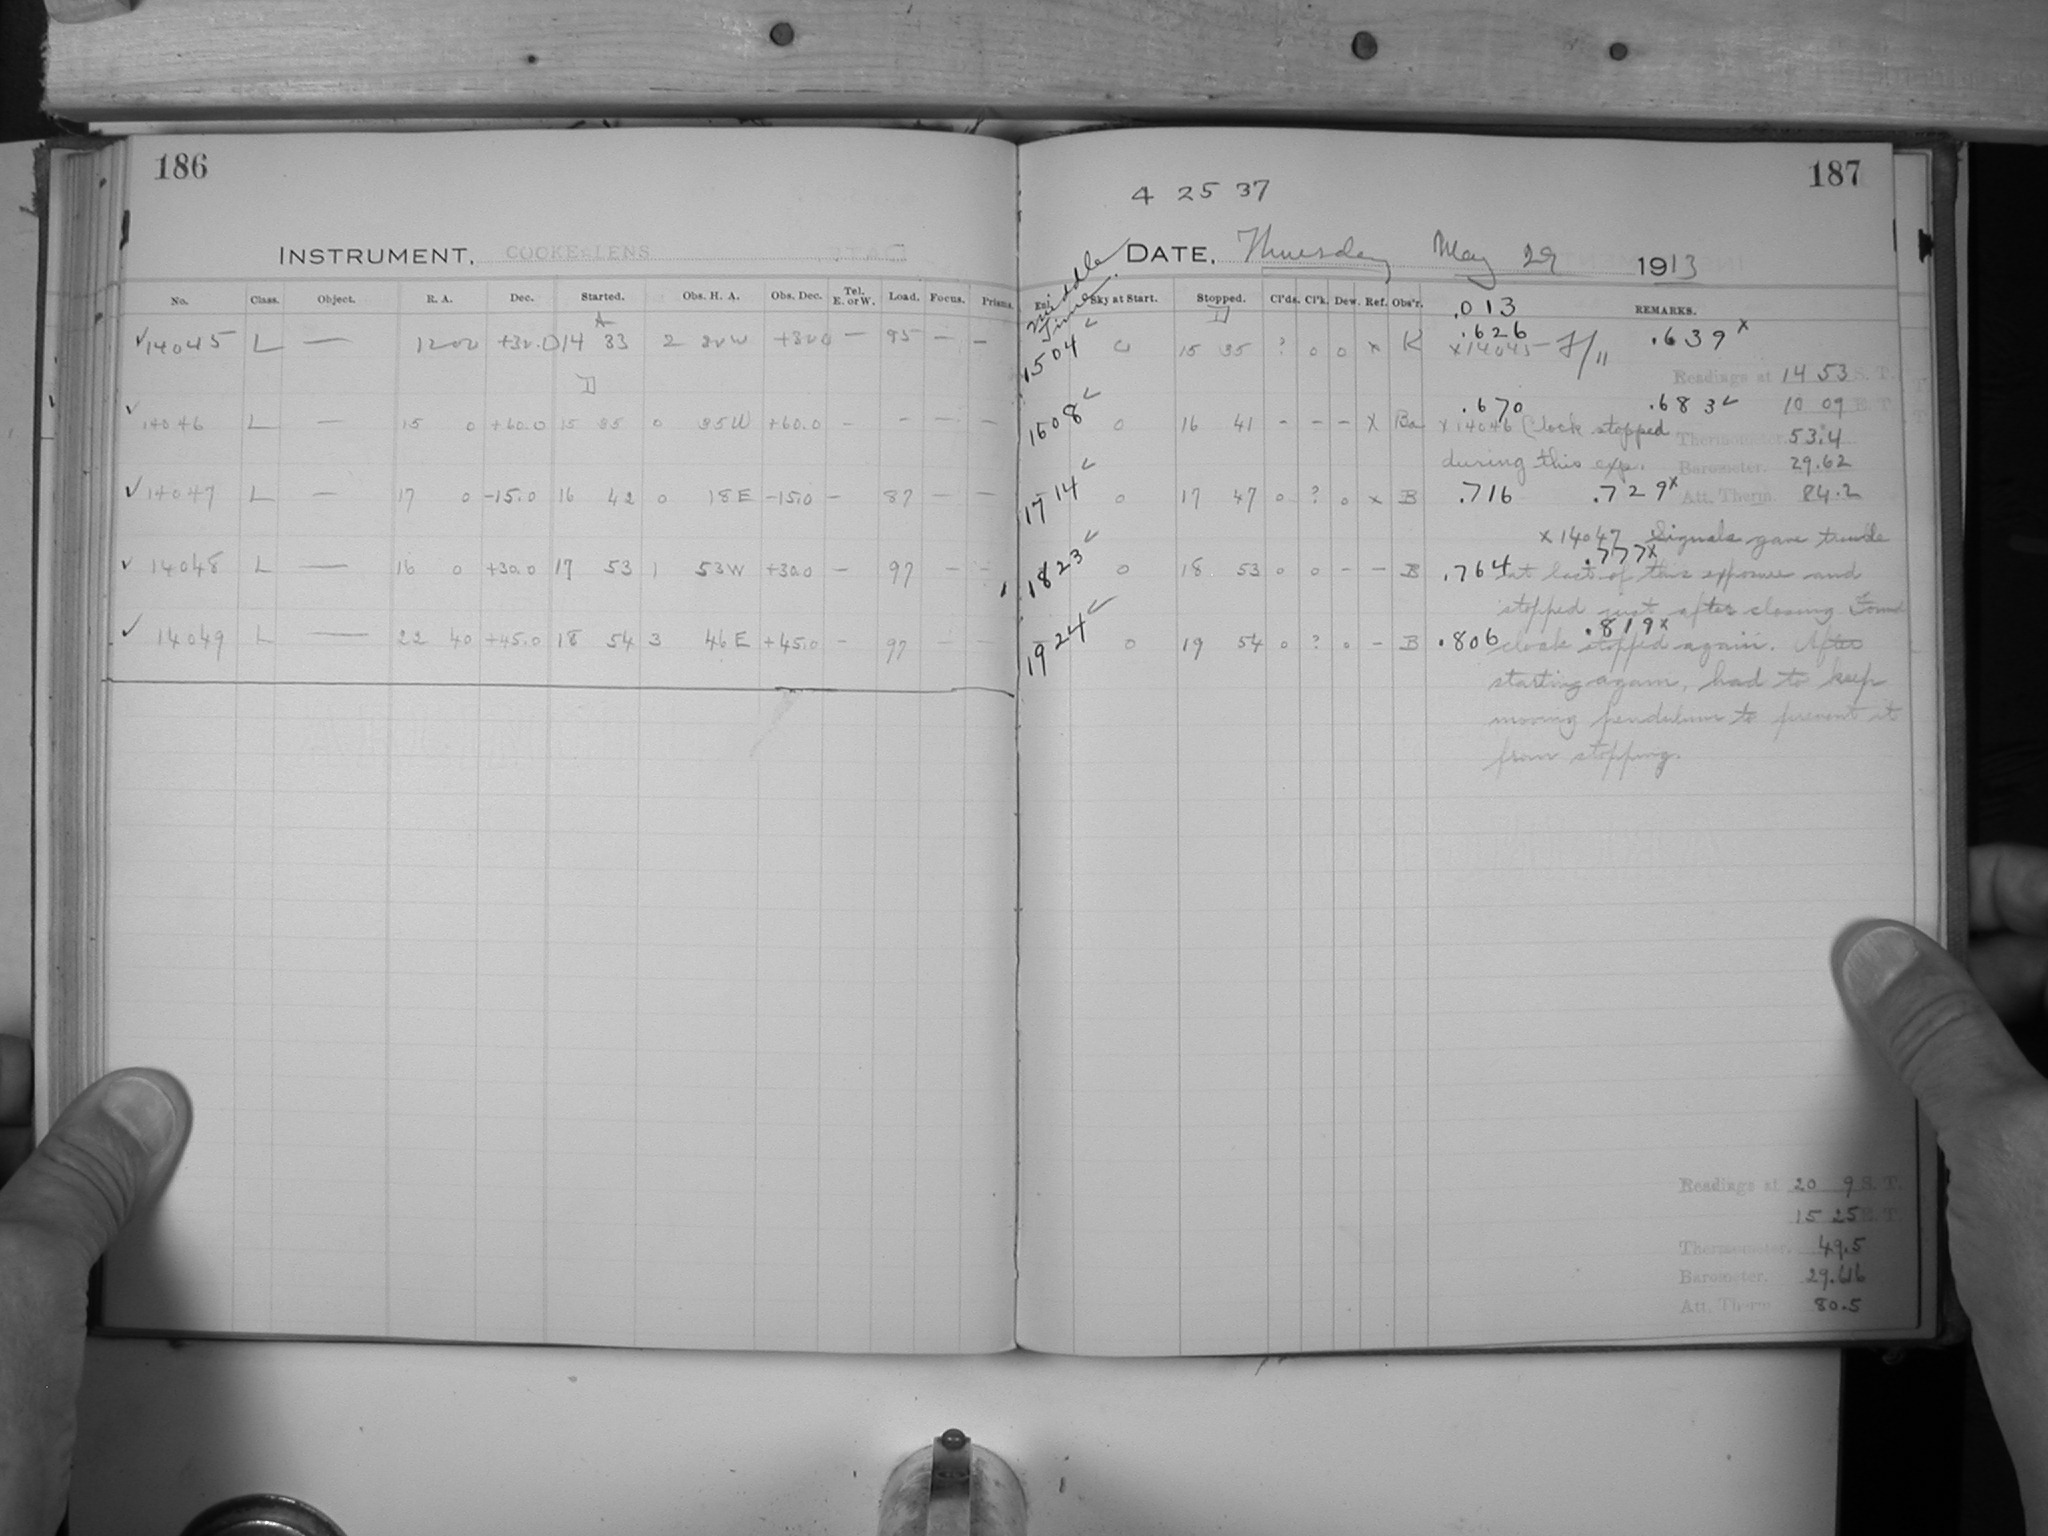 186
INSTRUMENT. COOKE LENS
No. Class. Object. R. A. Dec. Started. Obs. H. A. Obs. Dec. Tel. E. or W. Load. Focus. Prisms.
✓14045 L — 12 00 +30.0 14 33 2 +30.0 — 95 — —
II
✓14046 L — 15 0 +60.0 15 35 0 35W +60.0 — — — —
✓14047 L — 17 0 -15.0 16 42 0 18E -15.0 — 87 — —
✓14048 L — 16 0 +30.0 17 53 1 53W +30.0 — 97 — —
✓14049 L — 22 40 +45.0 18 54 3 46E +45.0 — 97 — —
187
4 25 37
DATE. Thursday May 29 1913
Middle Time
Sky at Start. Stopped. Cl'ds. Cl'k. Dew. Ref. Obs'r. REMARKS.
.013
II
1504✓ 0 15 35 ? 0 0 x K .626 .639x
x14045—
Readings at 14 53 S. T.
1608✓ 0 16 41 - - - X Ba .670 .683✓ 10 09 E. T.
x14046 Clock stopped
Thermometer. 53.4
during this exp. Barometer. 29.62
1714✓ 0 17 47 0 ? 0 x B .716 .729x Att. Therm. 84.2
x14047 Signals gave trouble
1823✓ 0 18 53 0 0 - - B .764 .777x
at last of this exposure and
stopped just after closing Found
1924✓ 0 19 54 0 ? 0 - B .806 .819x
clock stopped again. After
starting again, had to keep
moving pendulum to prevent it
from stopping.
Readings at 20 9 S. T.
15 25 E. T.
Thermometer. 49.5
Barometer. 29.616
Att. Therm. 80.5